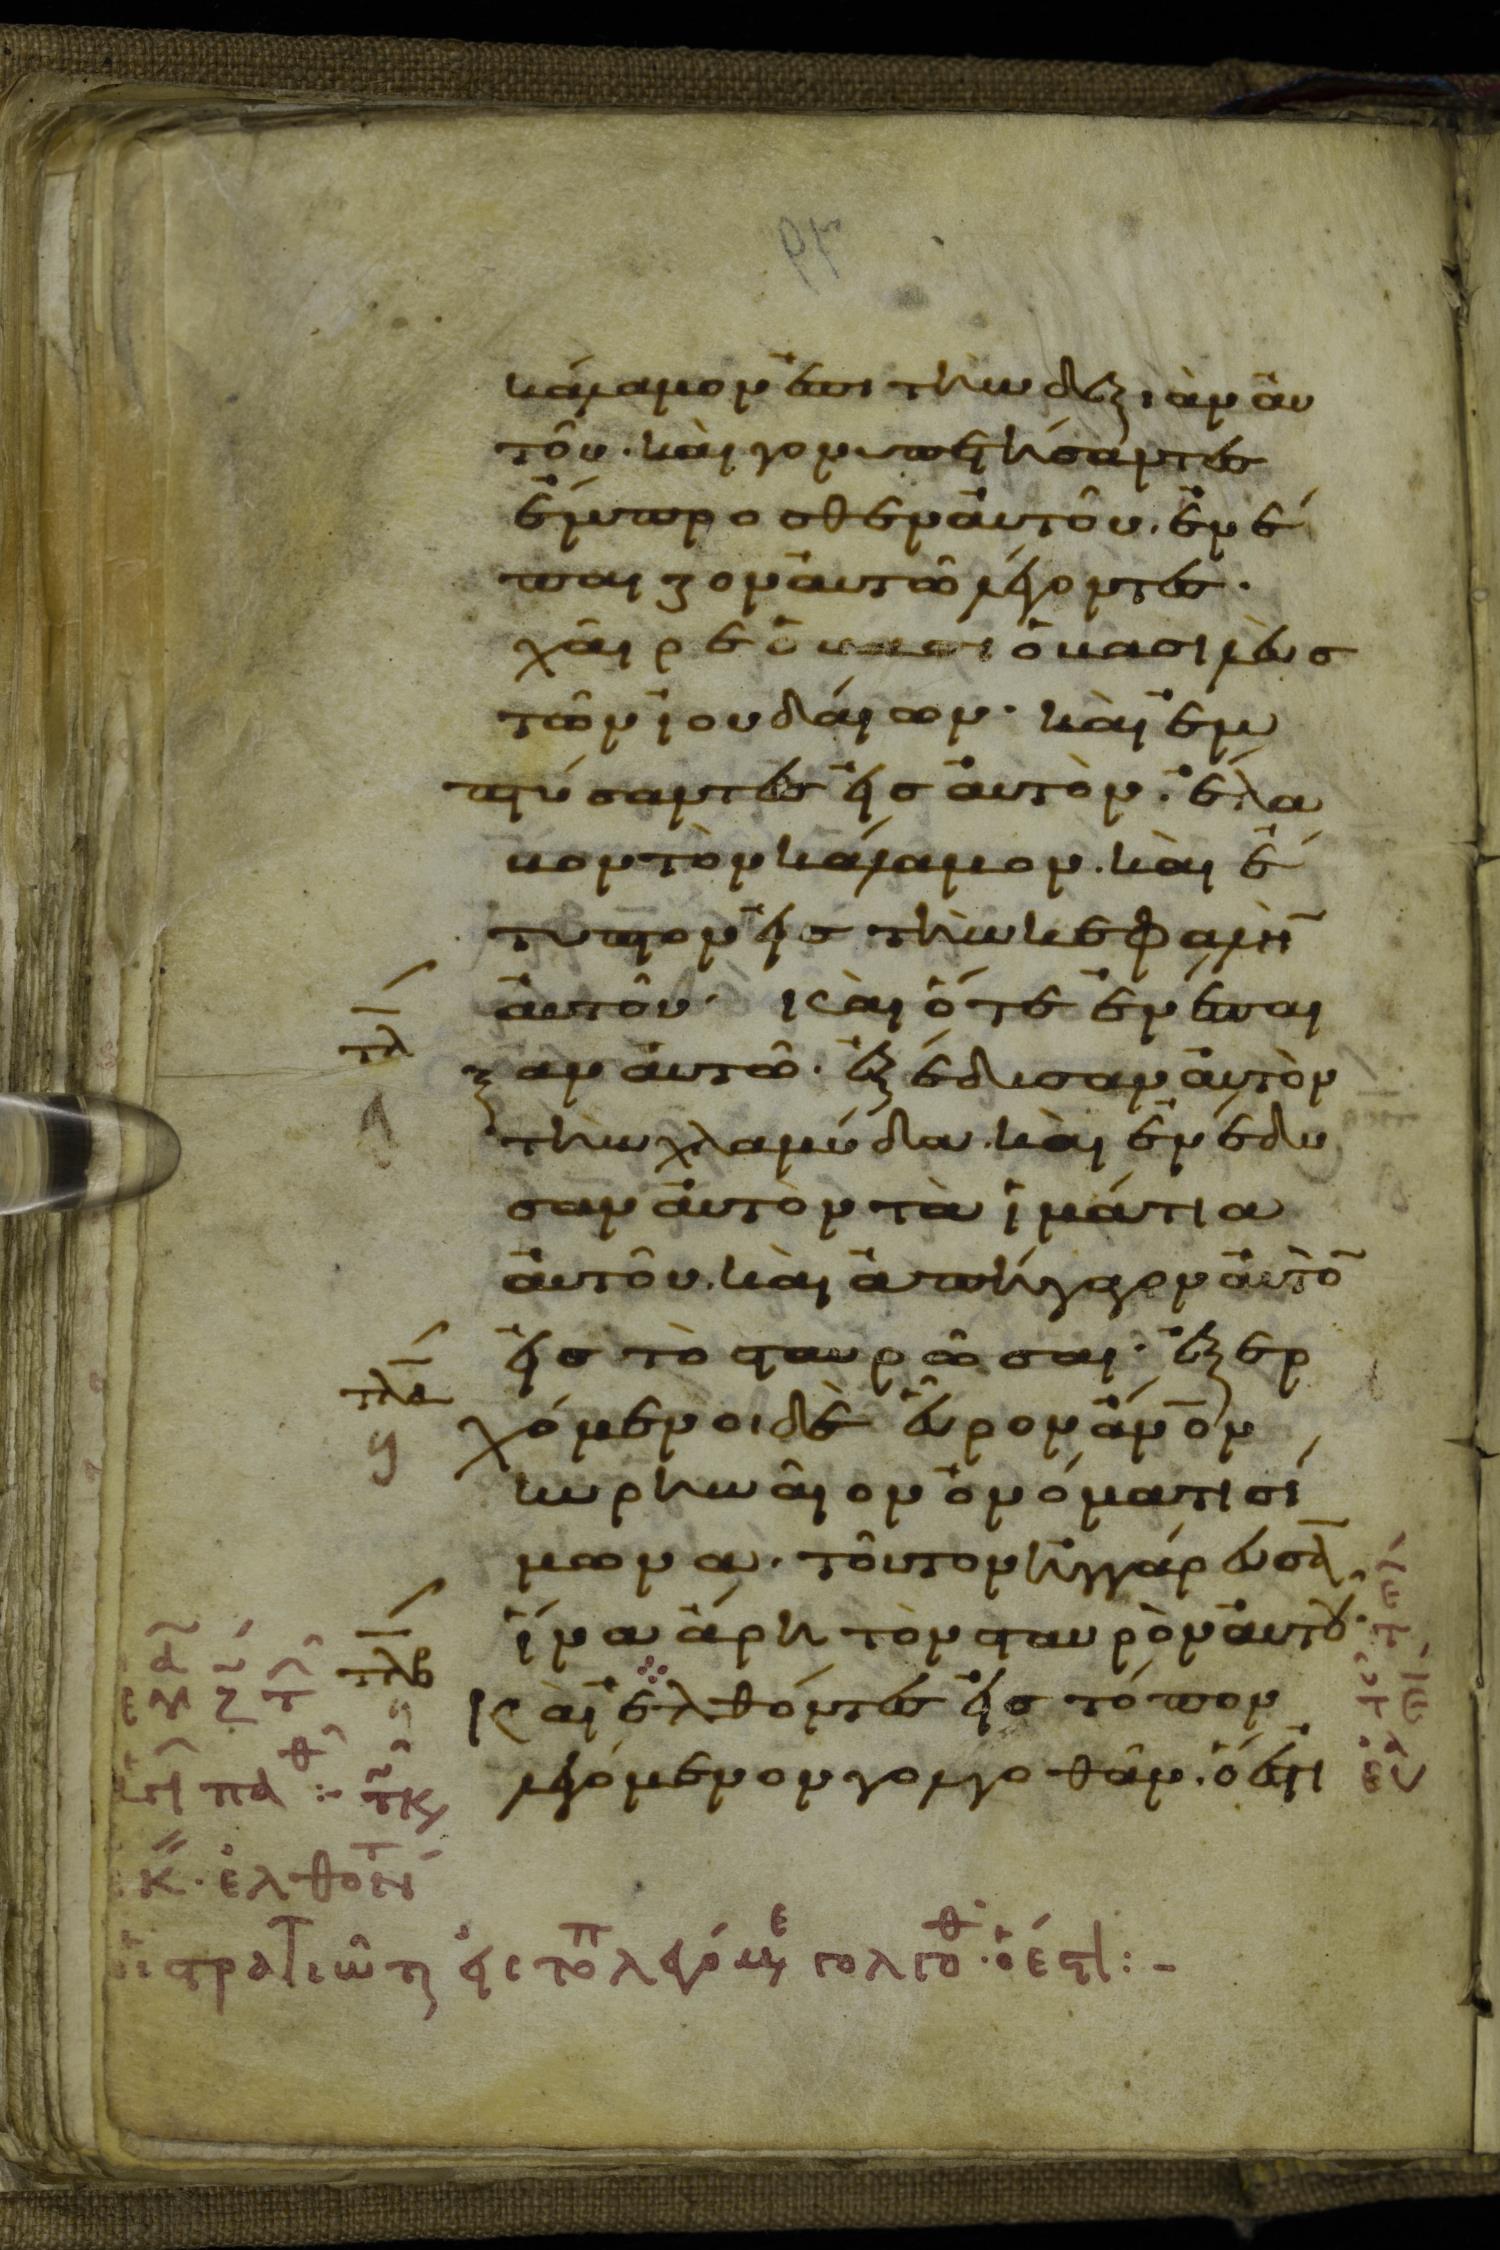 κάλαμον ἐπι τὴν δεξιὰν ἀυ
τοῦ. καὶ γονυπετήσαντες
ἔμπροσθεν ἀυτοῦ. ἐνέ
παιζον ἀυτῶ λέγοντες.
χαῖρε ὁ βασιλεὺσ
τῶν ἰουδάιων. καὶ ἐμ
πτύσαντες ἐισ ἀυτὸν. ἔλα
βον τὸν κάλαμον. καὶ ἔ
τυπτον ἐισ τὴν κεφαλὴ̄
ἀυτοῦ. καὶ ὅτε ἐνέπαι
τλ
ξαν ἀυτῶ. ἐξέδυσαν ἀυτὸν
τὴν χλαμύδα. καὶ ἐνέδυ
σαν ἀυτὸν τὰ ἱμάτια
ἀυτοῦ. καὶ ἀπήγαγον ἀυτὸ̄
ἐισ τὸ σταυρῶσαι. ἐξερ
τλα
χόμενοι δὲ εὗρον ἄν̄ον
κυρηναῖον ὀνόματι σί
μωνα. τοῦτον ἠγγάρευσᾱ
ἵνα ἄρη τὸν σταυρὸν ἀυτοῦ.
τλβ
καὶ ἐλθόντες ἐισ τόπον
λεγόμενον γολγοθᾶν. ὅ ἐστι
ἐλθοντ
στρατιῶτ εἰς τοπ λεγόμε γολγοθ. ὅ ἐστι :-